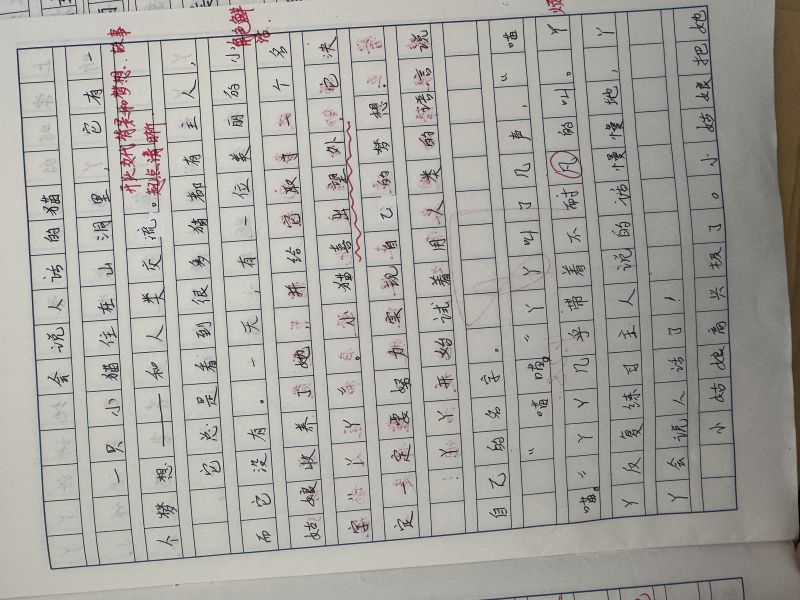 会说人话的猫
一只小猫住在山洞里，它有一
个梦想——和人类交流。
开头交代背景和梦想，故事
起点清晰
它总是看到很多猫都有主人，
而它没有。一天，有一位美丽的小
角色鲜
活.
姑娘收养了她，并给它取了一个名
字丫丫。小猫喜出望外，它决
定一定要努力实现自己的梦想。
丫丫开始试着用人类的语言说
自己的名字。
“喵喵。”丫丫叫了几声，“喵
喵。”丫丫几乎带着不耐凡的叫。丫
烦
丫反复练习主人说的话慢慢地，丫
丫会说人话了！
小姑娘高兴极了。小姑娘把她